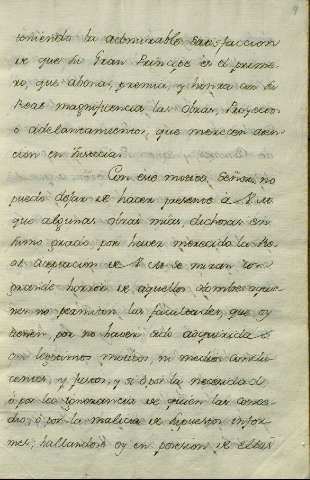 teniendo la admirable satisfaccion
de que su Gran Principe es el prime-
ro, que abona, premia, y honra con su
Real magnificencia las obras, Proyectos
ò adelantamientos, que merecen aten-
cion en Justicia.
Con este motivo, Señor, no
puedo dejar de hacer presente a V. M.
que algunas obras mias, dichosas en
sumo grado por haver merecido la Re-
al aceptacion de V. M. se miran con
grande horror de aquellos hombres a quie-
nes no permiten las facultades, que oy
tienen, por no haver sido adquiridas
con legitimos motivos, ni medios condu-
centes, y justos, y si ò por la necesidad
ò por la ignorancia de quien las conce-
dio, ò por la malicia de supuestos infor-
mes; hallandose oy en posesion de ellas